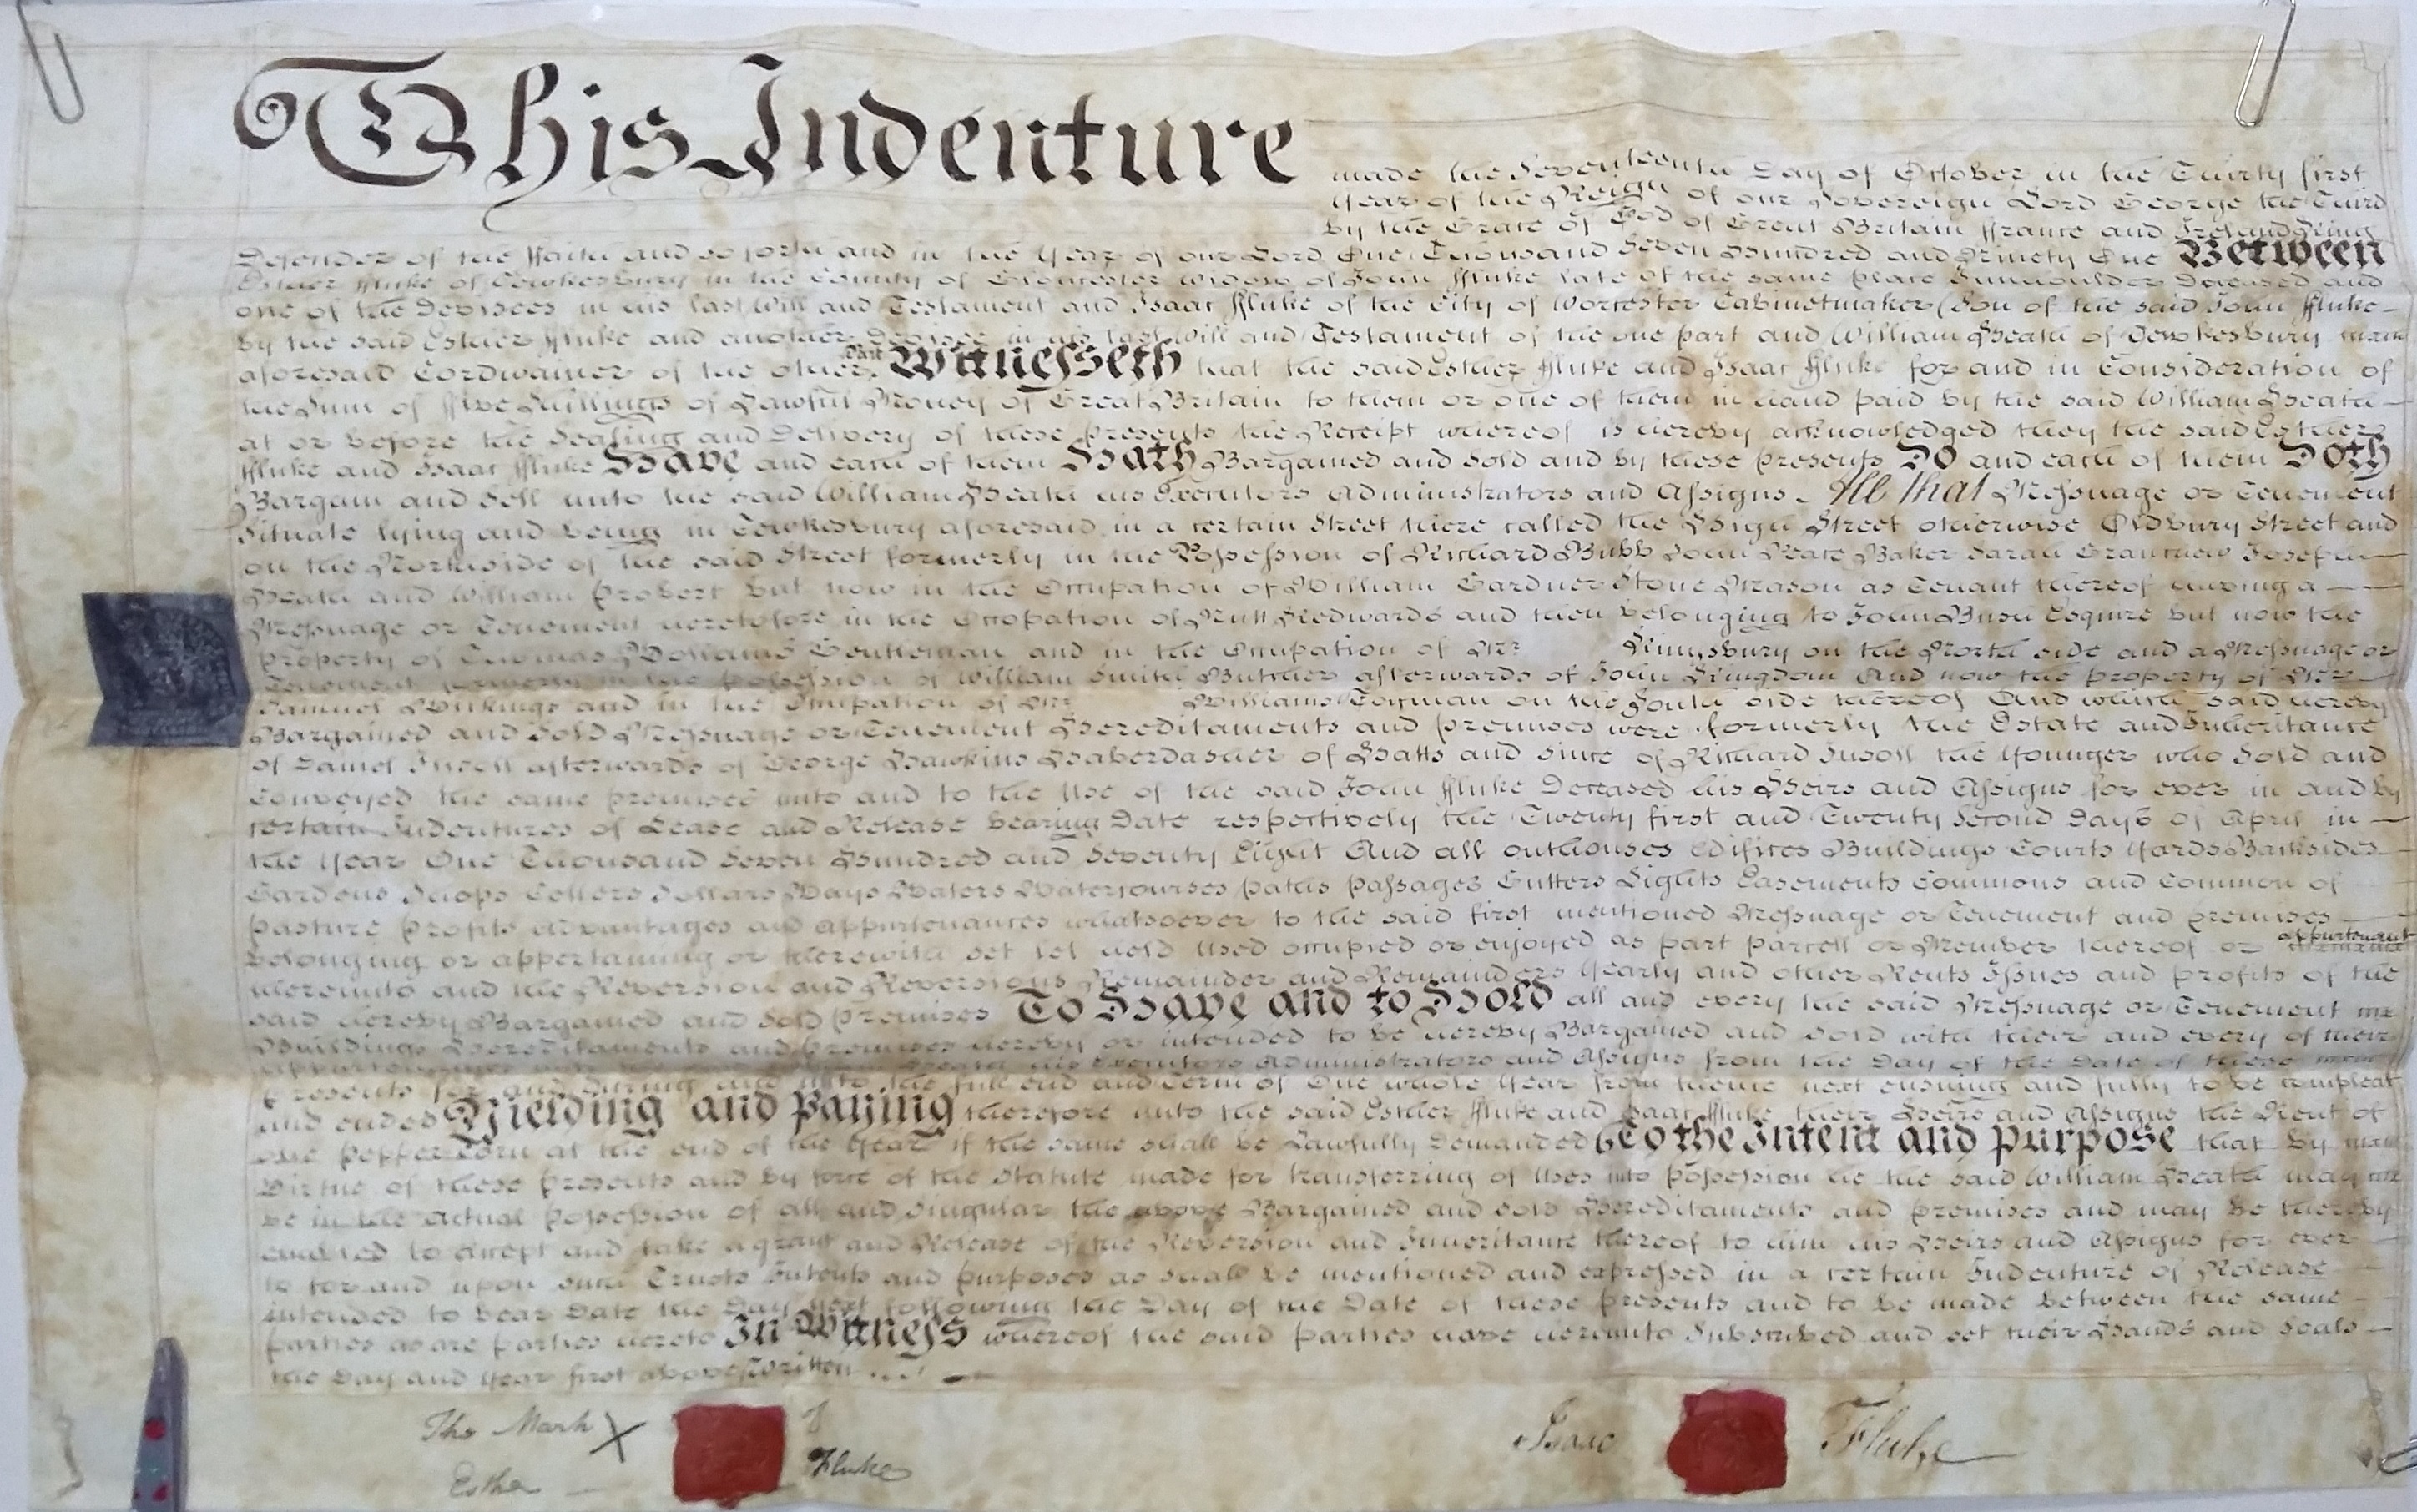 This Indenture made the Seventeenth Day of October in the Thirty first
Year of the Reign of our Sovereign Lord George the Third
by the Grace of God of Great Britain ffrance and Ireland King
Defender of the ffaith and so forth and in the Year of our Lord One Thousand Seven Hundred and Ninety One Between
Esther ffluke of Tewkesbury in the County of Gloucester Widow of John ffluke late of the same place Deceased and
one of the Devisees in his last Will and Testament and Isaac ffluke of the City of Worcester Cabinetmaker (Son of the said John ffluke
by the said Esther ffluke and another Devisee in his last Will and Testament of the one part and William Heath of Tewkesbury
aforesaid Cordwainer of the other Part Witnesseth that the said Esther ffluke and Isaac ffluke for and in Consideration of
the Sum of ffive Shillings of Lawful Money of Great Britain to them or one of them in hand paid by the said William Heath
at or before the Sealing and Delivery of these presents the Receipt whereof is hereby acknowledged they the said Esther
ffluke and Isaac ffluke Have and each of them Hath Bargained and Sold and by these presents Do and each of them Doth
Bargain and Sell unto the said William Heath his Executors Administrators and Assigns All that Messuage or Tenement
Situate lying and being in Tewkesbury aforesaid in a certain Street there called the High Street otherwise Oldbury Street and
on the Northside of the said Street formerly in the Possession of Richard Bubb John Baker Sarah Joseph
Heath and William Probert but now in the Occupation of William Gardner Stone Mason as Tenant thereof having a
Messuage or Tenement heretofore in the Occupation of and then belonging to John Bush Esquire but now the
property of Thomas Williams Gentleman and in the Occupation of Mr. Kingsbury on the North side and a Messuage or
Tenement formerly in the Possession of William Smith Butcher afterwards of John Kingdom And now the property of Mr.
Samuel and in the Occupation of Mr. Williams on the South side thereof And which said hereby
Bargained and Sold Messuage or Tenement Hereditaments and premises were formerly the Estate and Inheritance
of Daniel afterwards of George Hawkins Haberdasher of Hatts and since of Richard the Younger who Sold and
Conveyed the same premises unto and to the Use of the said John ffluke Deceased his Heirs and Assigns for ever in and by
certain Indentures of Lease and Release bearing Date respectively the Twenty first and Twenty Second Days of April in
the Year One Thousand Seven Hundred and Seventy Eight And all outhouses Edifices Buildings Courts Yards Backsides
Gardens Shops Cellers Sollars Ways Waters Watercourses paths passages Gutters Lights Easements Commons and Common of
pasture profits advantages and appurtenances whatsoever to the said first mentioned Messuage or Tenement and premises
belonging or appertaining or therewith set let held Used occupied or enjoyed as part parcell or Member thereof or appurtenant
thereunto and the Reversion and Reversions Remainder and Remainders Yearly and other Rents Issues and profits of the
said hereby Bargained and Sold premises To Have and to Hold all and every the said Messuage or Tenement
Buildings Hereditaments and premises hereby or intended to be hereby Bargained and Sold with their and every of their
appurtenances unto the said William Heath his Executors Administrators and Assigns from the Day of the Date of these
presents for and during and unto the full end and Term of One whole Year from thence next ensuing and fully to be compleat
and ended Yielding and Paying therefore unto the said Esther ffluke and Isaac ffluke their Heirs and Assigns the Rent of
one pepper Corn at the end of the Year if the same shall be Lawfully Demanded To the Intent and purpose that by
Virtue of these presents and by force of the Statute made for transferring of Uses into Possession he the said William Heath may
be in the actual possession of all and Singular the above Bargained and Sold Hereditaments and premises and may be thereby
enabled to accept and take a grant and Release of the Reversion and Inheritance thereof to him his Heirs and Assigns for ever
to for and upon such Trusts Intents and purposes as shall be mentioned and expressed in a certain Indenture of Release
intended to bear Date the Day next following the Day of the Date of these presents and to be made between the same
parties as are parties hereto In Witness whereof the said parties have hereunto Subscribed and set their Hands and Seals
the Day and Year first above Written
The Mark X of
Esther Fluke
Isaac Fluke